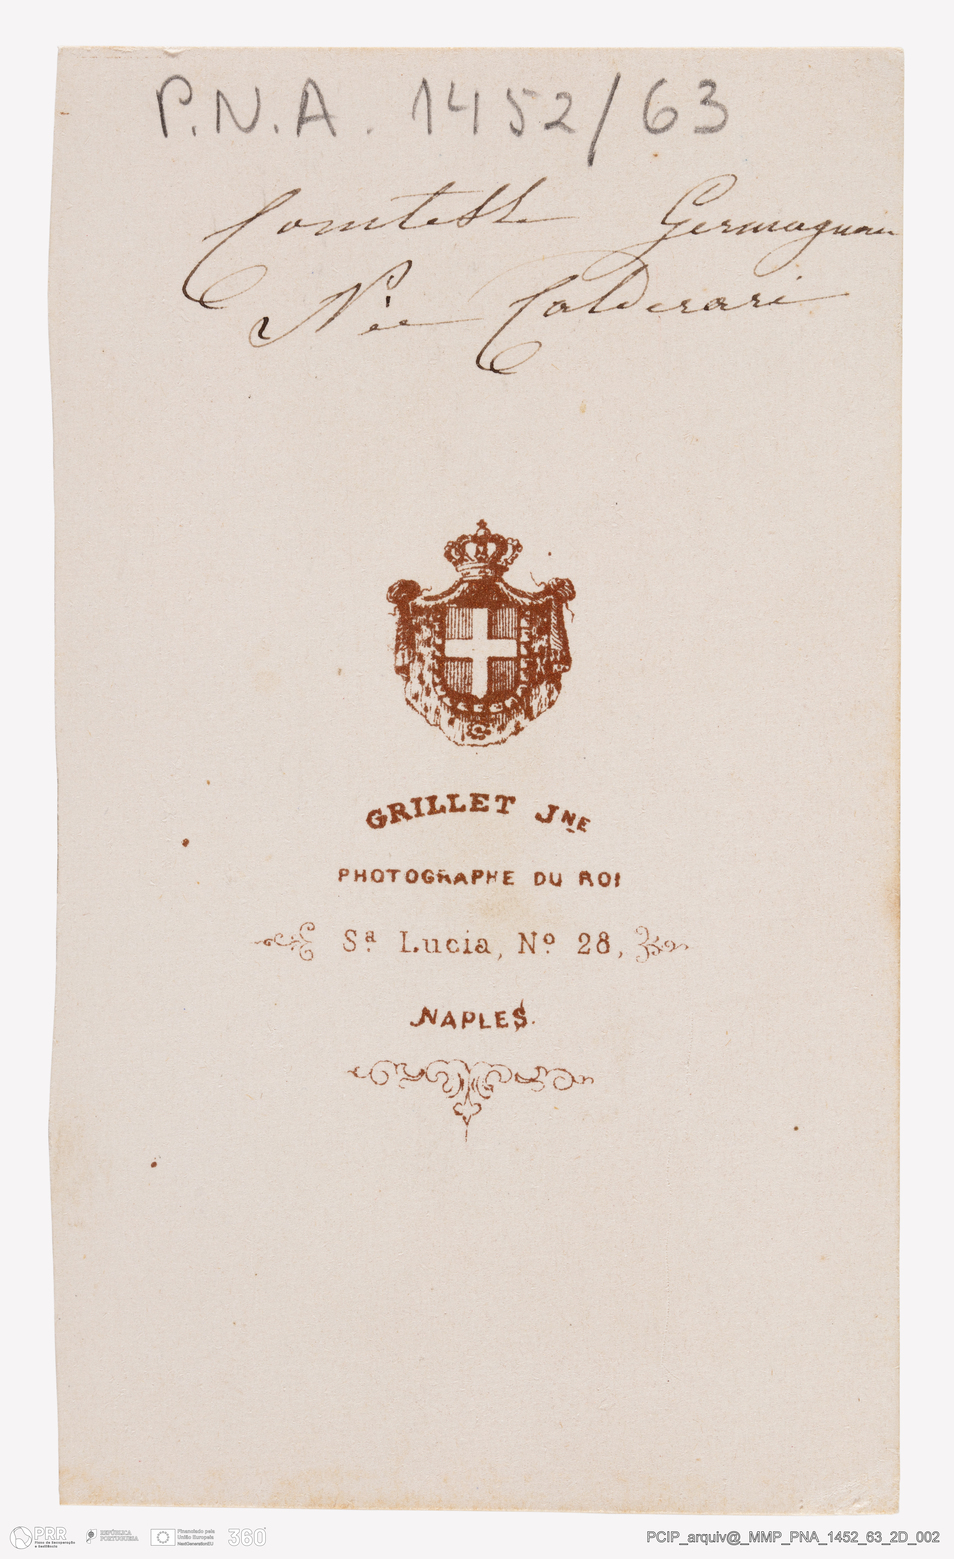 P.N.A. 1452/63
Comtesse Germagnan
Née Calderari
GRILLET JNE
PHOTOGRAPHE DU ROI
Sa. Lucia, No. 28,
NAPLES.
PRR
Plano de Recuperação e Resiliência
REPÚBLICA PORTUGUESA
Financiado pela União Europeia
NextGenerationEU
360
PCIP_arquiv@_MMP_PNA_1452_63_2D_002